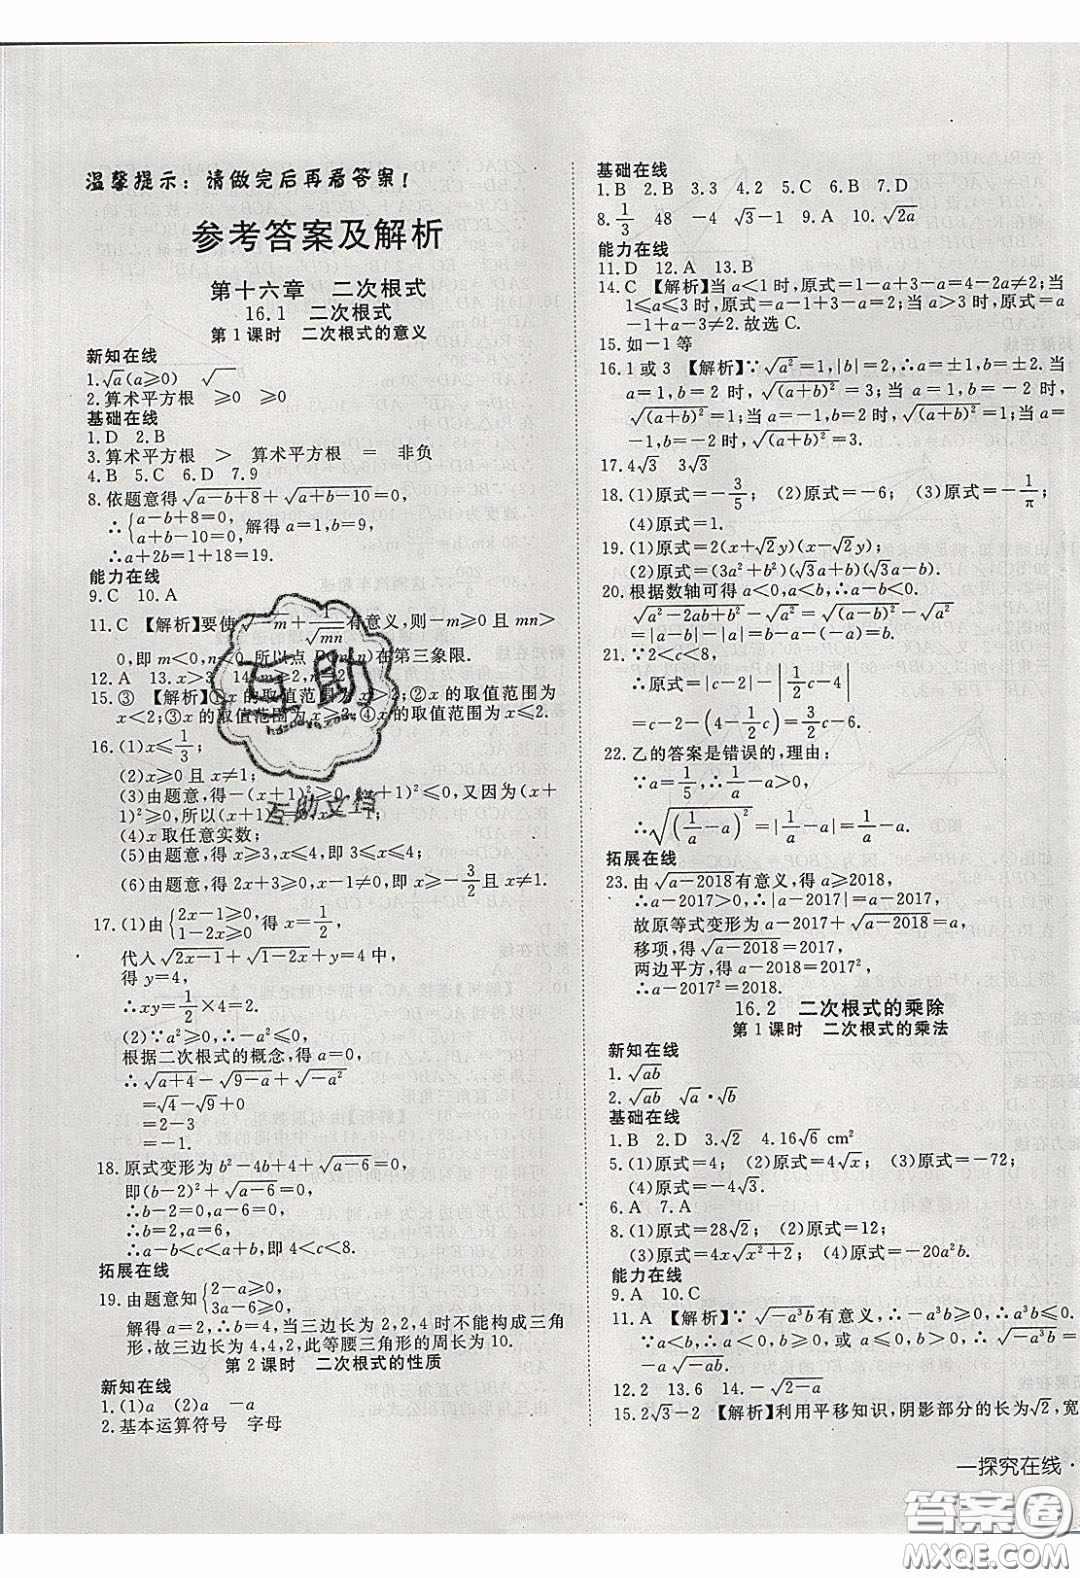 温馨提示：请做完后再看答案！
参考答案及解析
第十六章　二次根式
16.1　二次根式
第1课时　二次根式的意义
新知在线
1.√a(a⩾0)　√
2.算术平方根　⩾0　⩾0
基础在线
1.D　2.B
3.算术平方根　>　算术平方根　=　非负
4.B　5.C　6.D　7.9
8.依题意得√(a-b+8)+√(a+b-10)=0,
∴{a-b+8=0, a+b-10=0, 解得a=1,b=9,
∴a+2b=1+18=19.
能力在线
9.C　10.A
11.C　【解析】要使√(-m)+1/√(mn)有意义,则-m⩾0且mn>
0,即m<0,n<0,所以点P(m,n)在第三象限.
12.A　13.x>3　14.m⩾2,n=2
15.③　【解析】①x的取值范围为x>2;②x的取值范围为
x<2;③x的取值范围为x⩾2;④x的取值范围为x⩽2.
16.(1)x⩽1/3;
(2)x⩾0且x≠1;
(3)由题意,得-(x+1)²⩾0,(x+1)²⩽0,又因为(x+
1)²⩾0,所以(x+1)²=0,
(4)x取任意实数;
(5)由题意,得x⩾3,x⩽4,即3⩽x⩽4;
(6)由题意,得2x+3⩾0,即x⩾-3/2且x≠1.
17.(1)由{2x-1⩾0, 1-2x⩾0 得x=1/2,
代入√(2x-1)+√(1-2x)+y=4中,
得y=4,
∴xy=1/2×4=2.
(2)∵a²⩾0,∴-a²⩽0,
根据二次根式的概念,得a=0,
∴√(a+4)-√(9-a)+√(-a²)
=√4-√9+0
=2-3
=-1.
18.原式变形为b²-4b+4+√(a-6)=0,
即(b-2)²+√(a-6)=0,
∴b-2=0,a-6=0,
∴b=2,a=6,
∴a-b<c<a+b,即4<c<8.
拓展在线
19.由题意知{2-a⩾0, 3a-6⩾0,
解得a=2,∴b=4,当三边长为2,2,4时不能构成三角
形,故三边长为4,4,2,此等腰三角形的周长为10.
第2课时　二次根式的性质
新知在线
1.(1)a　(2)a　-a
2.基本运算符号　字母
基础在线
1.B　2.B　3.2　4.2　5.C　6.D　7.B
8.1/3　48　-4　√3-1　9.A　10.√(2a)
能力在线
11.D　12.A　13.B
14.C　【解析】当a<1时,原式=1-a+3-a=4-2a≠2;当
1⩽a⩽3时,原式=a-1+3-a=2;当a>3时,原式=a
-1+a-3≠2.故选C.
15.如-1等
16.1或3　【解析】∵√(a²)=1,|b|=2,∴a=±1,b=±2.当
a=1,b=2时,√((a+b)²)=3;当a=1,b=-2时,
√((a+b)²)=1;当a=-1,b=2时,√((a+b)²)=1;当a=
-1,b=-2时,√((a+b)²)=3.
17.4√3　3√3
18.(1)原式=-3/5;　(2)原式=-6;　(3)原式=-1/π;
(4)原式=1.
19.(1)原式=2(x+√2y)(x-√2y);
(2)原式=(3a²+b²)(√3a+b)(√3a-b).
20.根据数轴可得a<0,a<b,∴a-b<0.
√(a²-2ab+b²)-√(a²)=√((a-b)²)-√(a²)
=|a-b|-|a|=-(a-b)+a=b.
21.∵2<c<8,
∴原式=|c-2|-|1/2c-4|
=c-2-(4-1/2c)=3/2c-6.
22.乙的答案是错误的,理由:
∵a=1/5,∴1/a-a>0,
∴√((1/a-a)²)=|1/a-a|=1/a-a.
拓展在线
23.由√(a-2018)有意义,得a⩾2018,
∴a-2017>0,∴|2017-a|=a-2017,
故原等式变形为a-2017+√(a-2018)=a,
移项,得√(a-2018)=2017,
两边平方,得a-2018=2017²,
∴a-2017²=2018.
16.2　二次根式的乘除
第1课时　二次根式的乘法
新知在线
1.√(ab)
2.√(ab)　√a·√b
基础在线
1.B　2.D　3.√2　4.16√6 cm²
5.(1)原式=4;　(2)原式=4√x;　(3)原式=-72;
(4)原式=-4√3.
6.A　7.A
8.(1)原式=28√2;　(2)原式=12;
(3)原式=4x√(x²+2);　(4)原式=-20a²b.
能力在线
9.A　10.C
11.A　【解析】∵√(-a³b)有意义,∴-a³b⩾0,∴a³b⩽0.
又∵a<b,∴a<0,b⩾0或a⩽0,b>0,∴√(-a³b)=
-a√(-ab).
12.2　13.6　14.-√(2-a)
15.2√3-2　【解析】利用平移知识,阴影部分的长为√2,宽
一探究在线·
互助
hzzdyxzcx
互助文档
答案卷
MXQE.COM